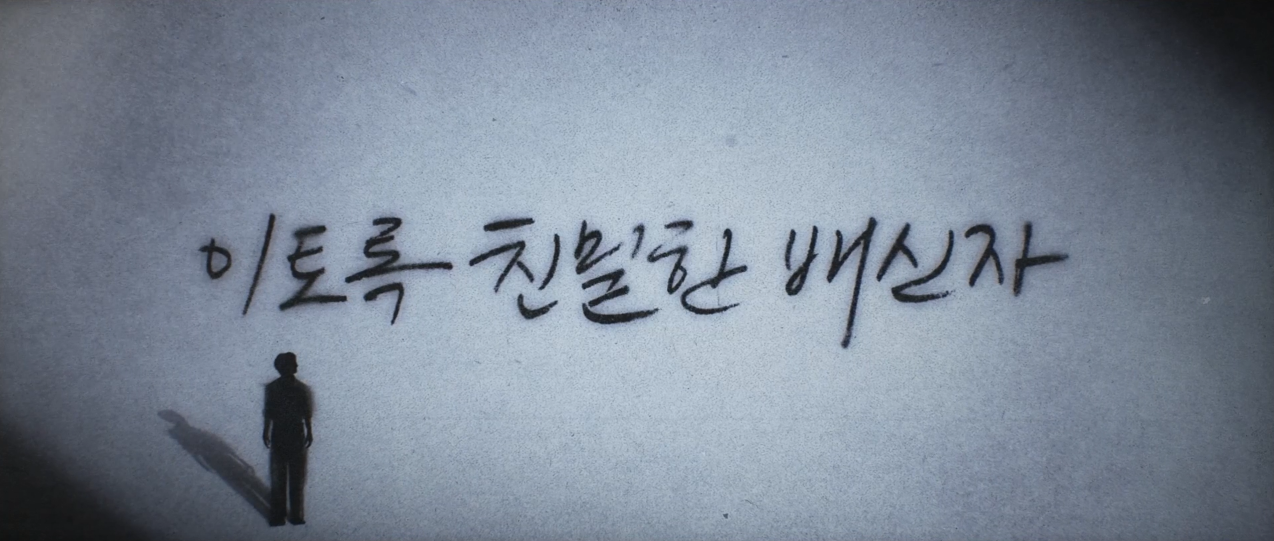 이토록 친밀한 배신자